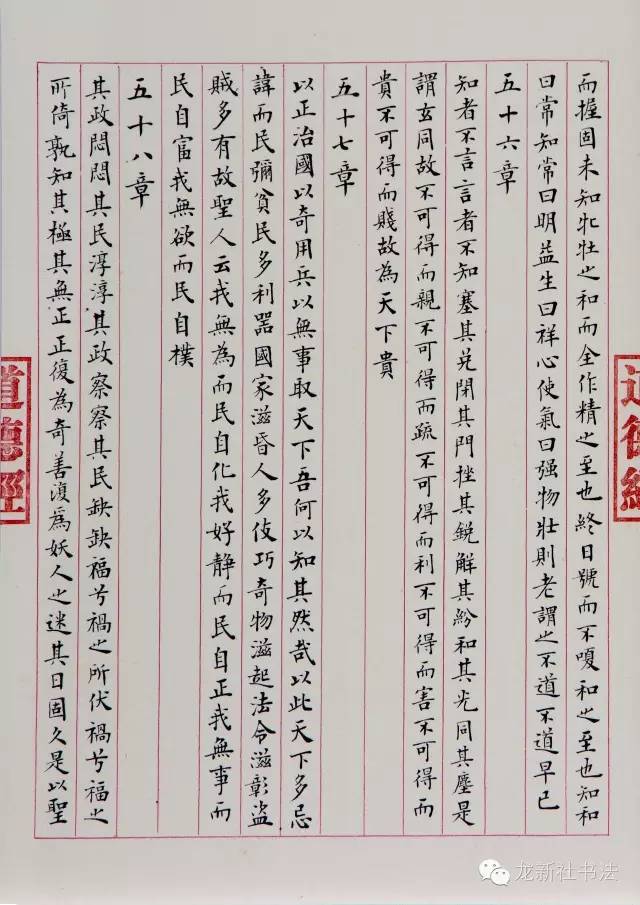 而握固未知牝牡之和而全作精之至也終日號而不嗄和之至也知和
曰常知常曰明益生曰祥心使氣曰强物壯則老謂之不道不道早已
五十六章
知者不言言者不知塞其兑閉其門挫其鋭解其紛和其光同其塵是
謂玄同故不可得而親不可得而疏不可得而利不可得而害不可得而
貴不可得而賤故為天下貴
五十七章
以正治國以奇用兵以無事取天下吾何以知其然哉以此天下多忌
諱而民彌貧民多利器國家滋昏人多伎巧奇物滋起法令滋彰盜
賊多有故聖人云我無為而民自化我好静而民自正我無事而
民自富我無欲而民自樸
五十八章
其政悶悶其民淳淳其政察察其民缺缺福兮禍之所伏禍兮福之
所倚孰知其極其無正正復為奇善復為妖人之迷其日固久是以聖
道德經
道德經
龙新社书法